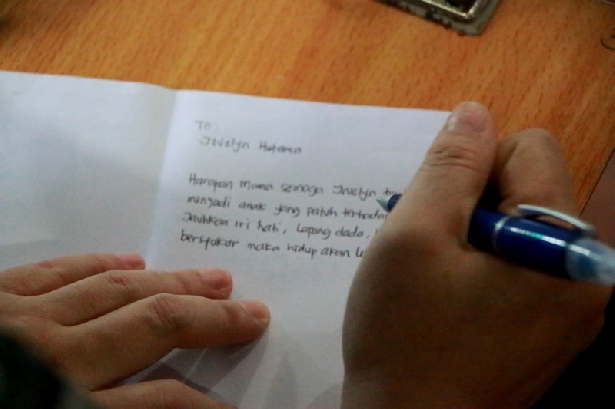 To:
Jovelyn Hutama
Harapan mama semoga Jovelyn
menjadi anak yang patuh terhada
Jauhkan iri hati, lapang dada,
bersyukur maka hidup akan le